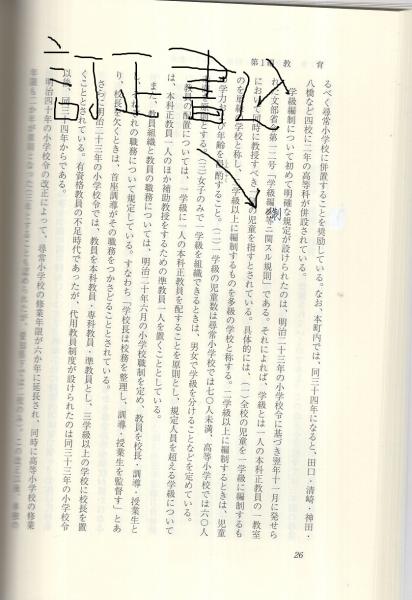 訂正書込
第1編 教 育
るべく尋常小学校に併置することを奨励している。なお、本町内では、同三十四年になると、田口・清崎・神田・
八橋など四校に二年の高等科が併設されている。
学級編制について初めて明確な規定が設けられたのは、明治二十三年の小学校令に基づき翌年十一月に発せら
れた文部省令第一二号「学級編制等ニ関スル規則」である。それによれば、学級とは一人の本科正教員の一教室
において同時に教授すべき の児童を指すとされている。具体的には、(一)全校の児童を一学級に編制するも
のを単級の学校と称し、二学級以上に編制するものを多級の学校と称する。二学級以上に編制するときは、児童
学力および年齢を斟酌すること。(二)一学級の児童数は尋常小学校では七〇人未満、高等小学校では六〇人
を原則とする。(三)女子のみで一学級を組織できるときは、男女で学級を分けることなどを定めている。
教員の配置については、一学級に一人の本科正教員を配することを原則とし、規定人員を超える学級について
は、本科正教員一人のほか補助教授をするための準教員一人を置くこととしている。
また、教員組織と教員の職務については、明治二十年六月の小学校職制を定め、教員を校長・訓導・授業生と
それぞれの職務について規定している。すなわち「学校長は校務を整理し、訓導・授業生を監督す」とあ
り、校長を欠くときは、首座訓導がその職務をつかさどることとされている。
さらに明治二十三年の小学校令では、教員を本科教員・専科教員・準教員とし、三学級以上の学校に校長を置
くこととされている。有資格教員の不足時代であったが、代用教員制度が設けられたのは同三十三年の小学校令
以後、同三十四年からである。
明治四十年の小学校令の改正によって、尋常小学校の修業年限が六か年に延長され、同時に高等小学校の修業
制
26